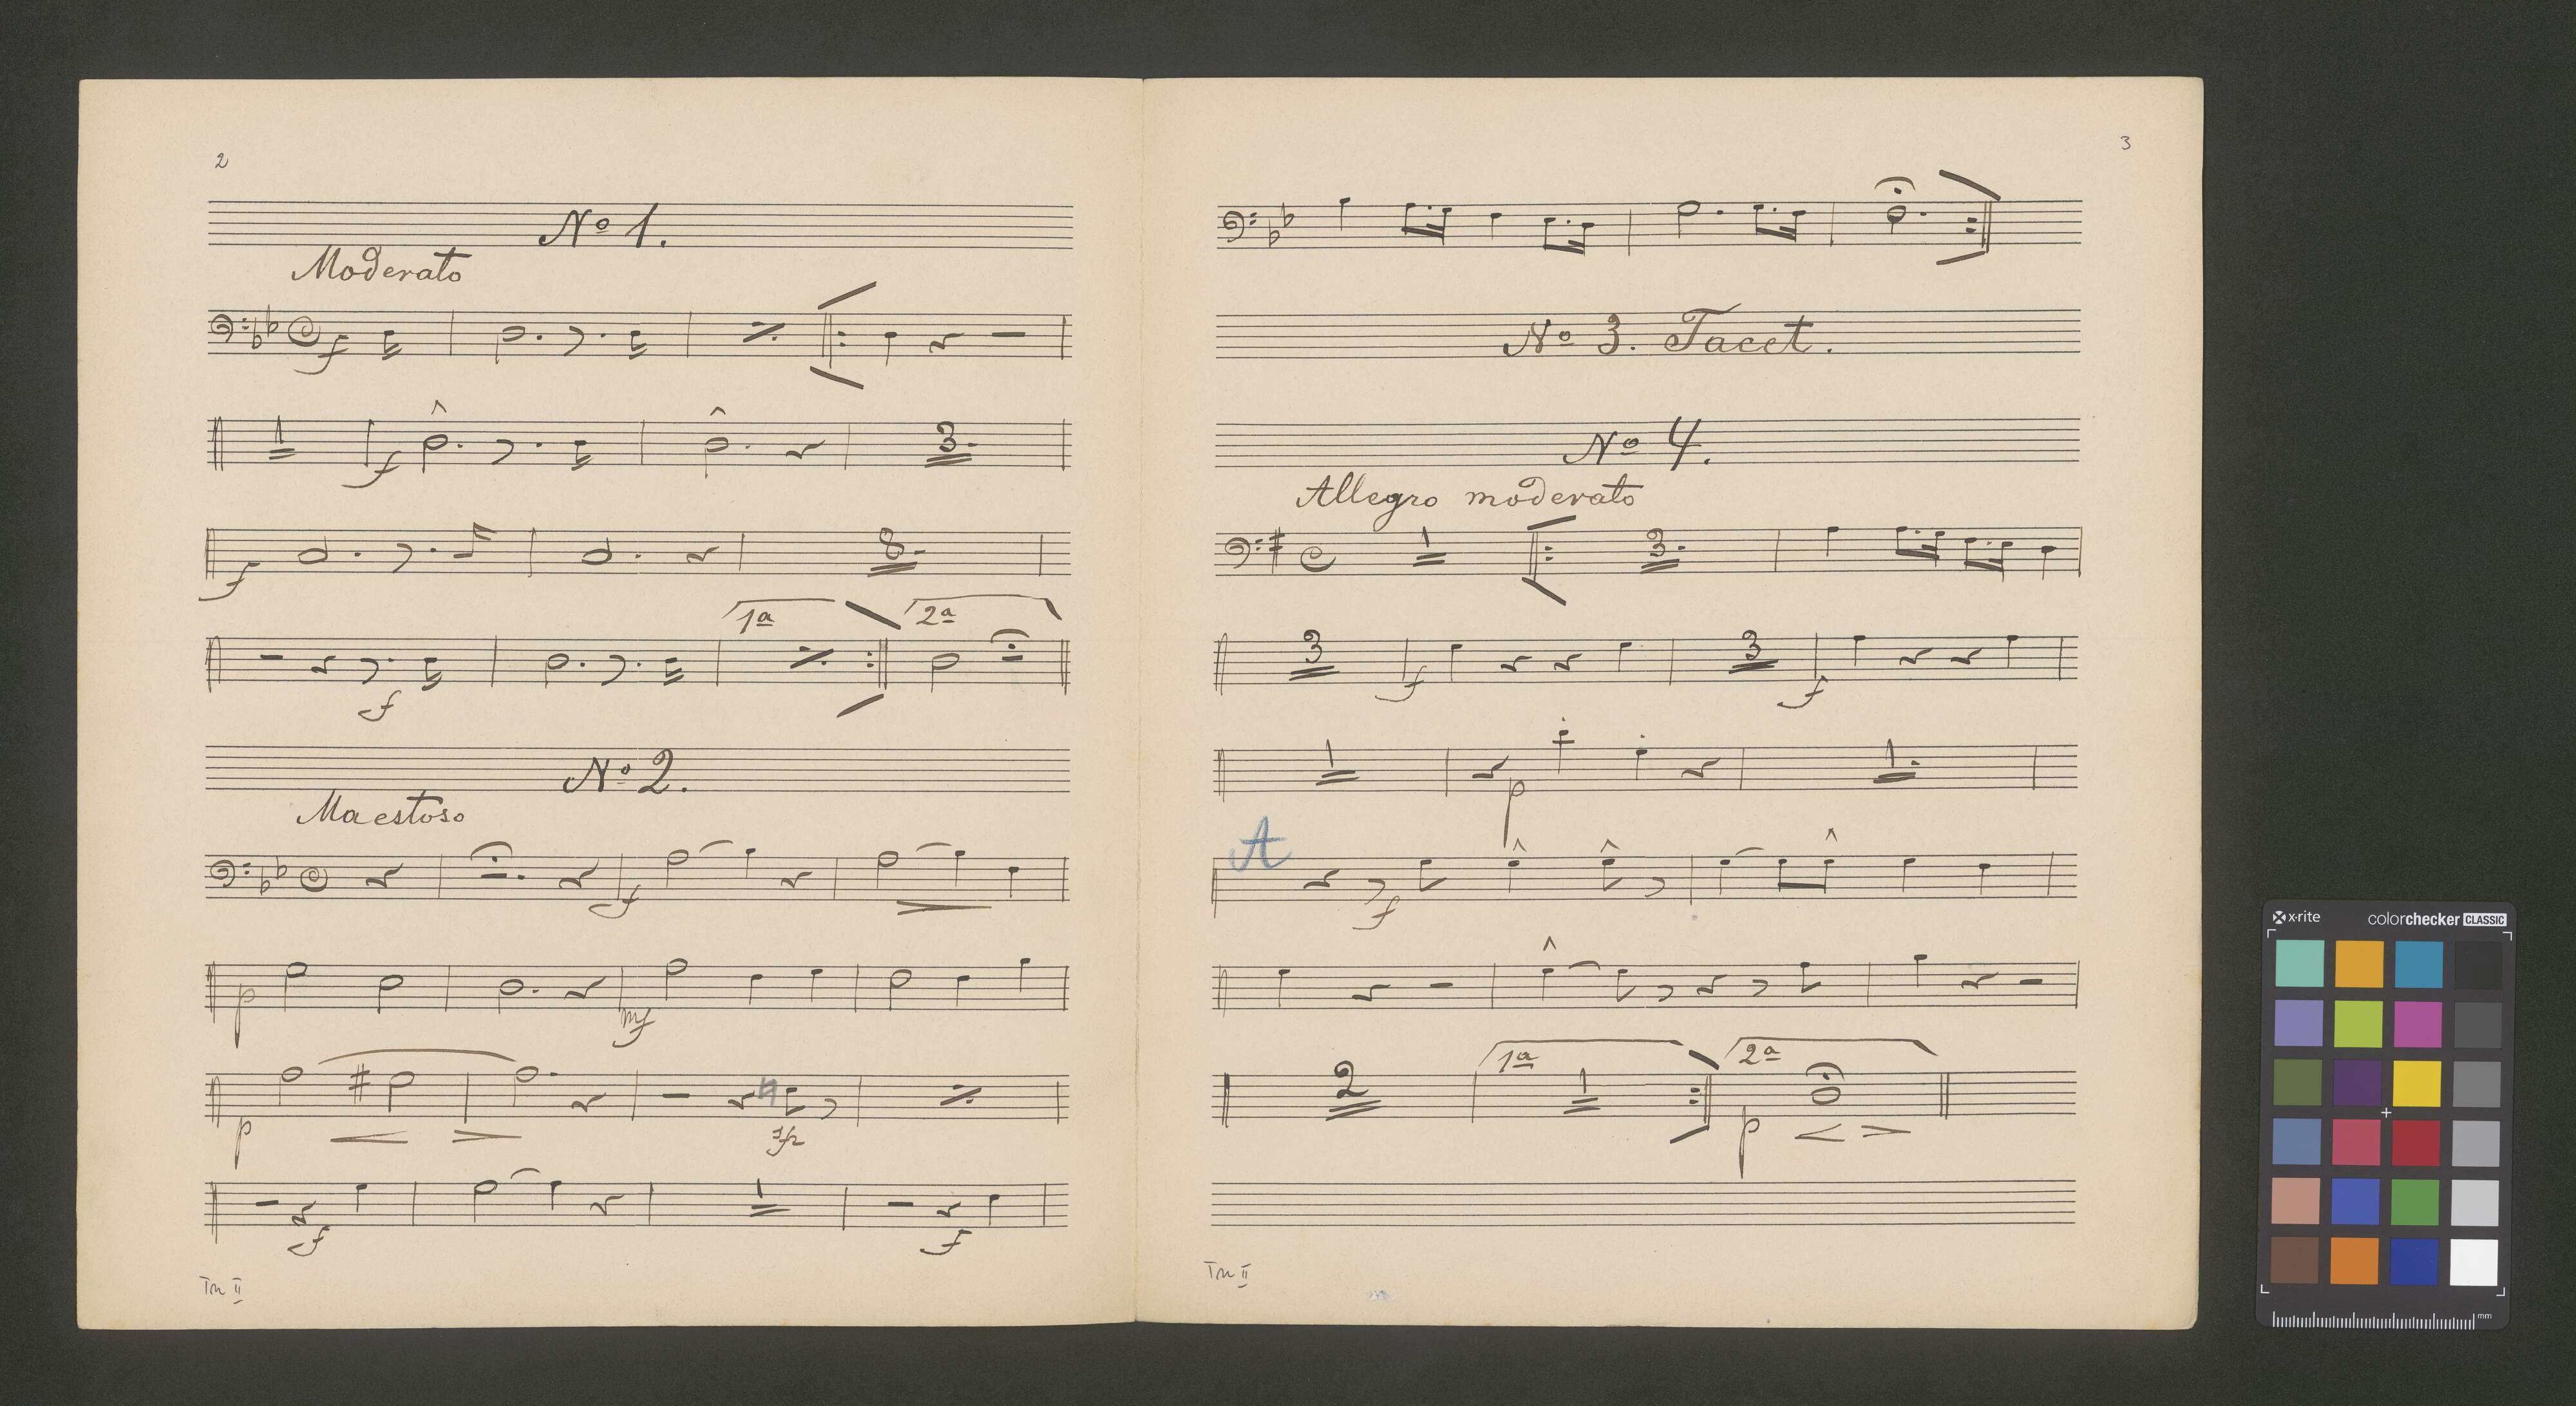 2
Nº 1.
Moderato
f
1
f
3.
f
8.
1ª
2ª
f
Nº 2.
Maestoso
f
p
mf
p
sfz
1
f
f
Tm II
3
Nº 3. Tacet.
Nº 4.
Allegro moderato
1
3.
3
f
3
f
1
p
1.
A
f
2
1ª
1
2ª
p
Tm II
x-rite
colorchecker CLASSIC
mm